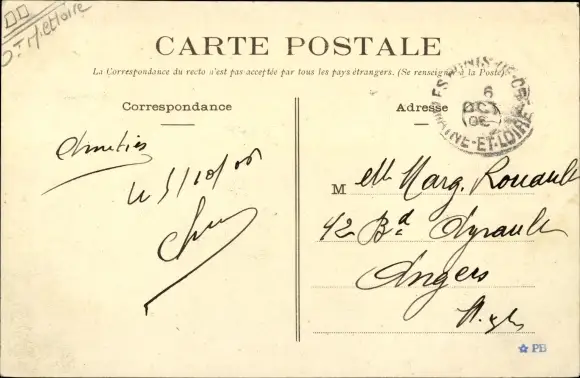 Dt M. et Loire
CARTE POSTALE
La Correspondance du recto n'est pas acceptée par tous les pays étrangers. (Se renseigner à la Poste)
Correspondance
Adresse
6
OCT
06
MAINE-ET-LOIRE
Amitiés
le 5/10/06
M elle Marg. Rouault
42 Bd Ayrault
Angers
PB